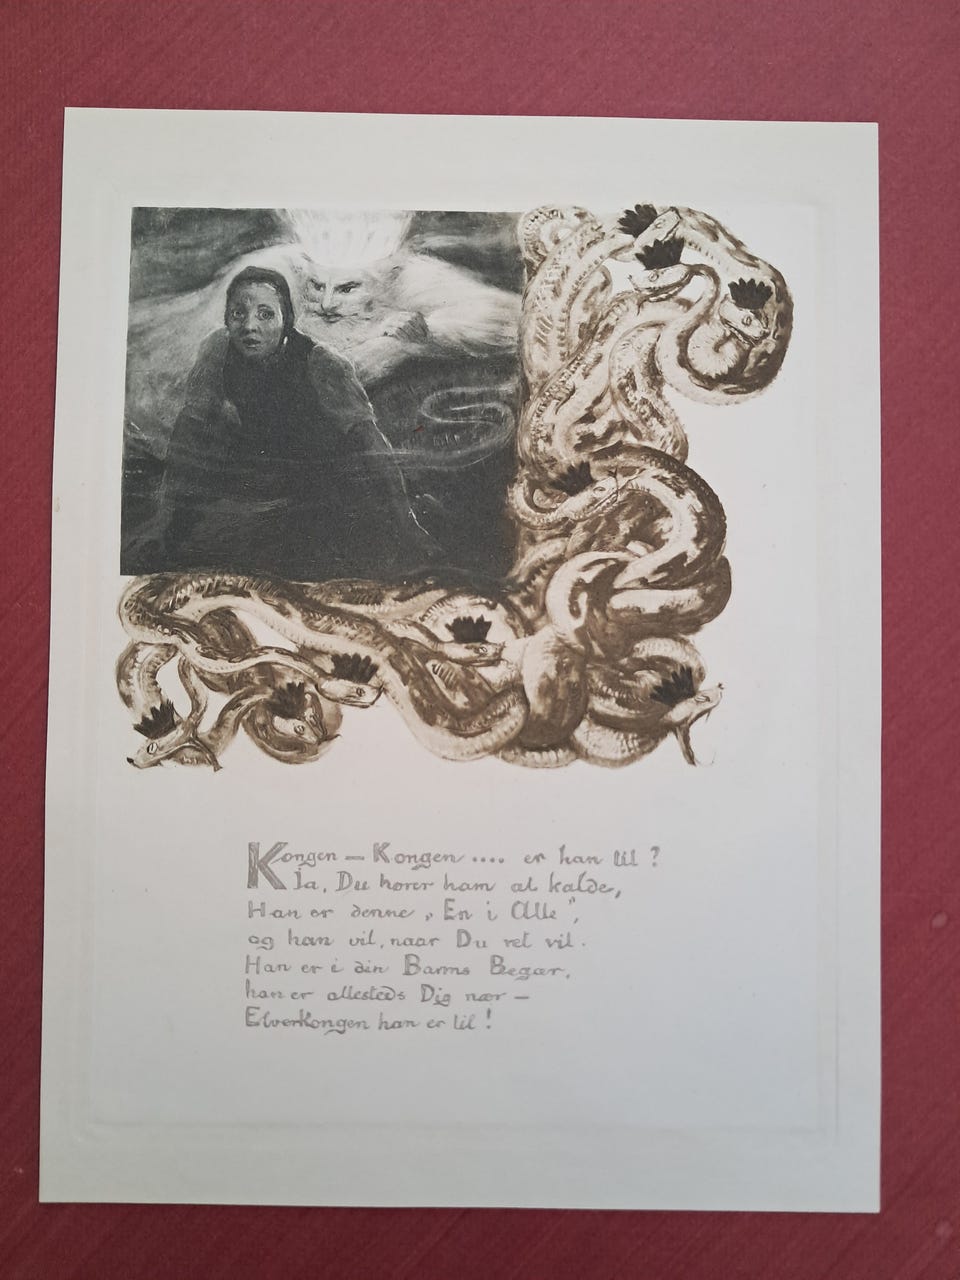 Kongen — Kongen .... er han til ?
Ja, Du hører ham at kalde,
Han er denne „ En i Alle ",
og han vil, naar Du ret vil.
Han er i din Barms Begær,
han er allesteds Dig nær —
Elverkongen han er til !